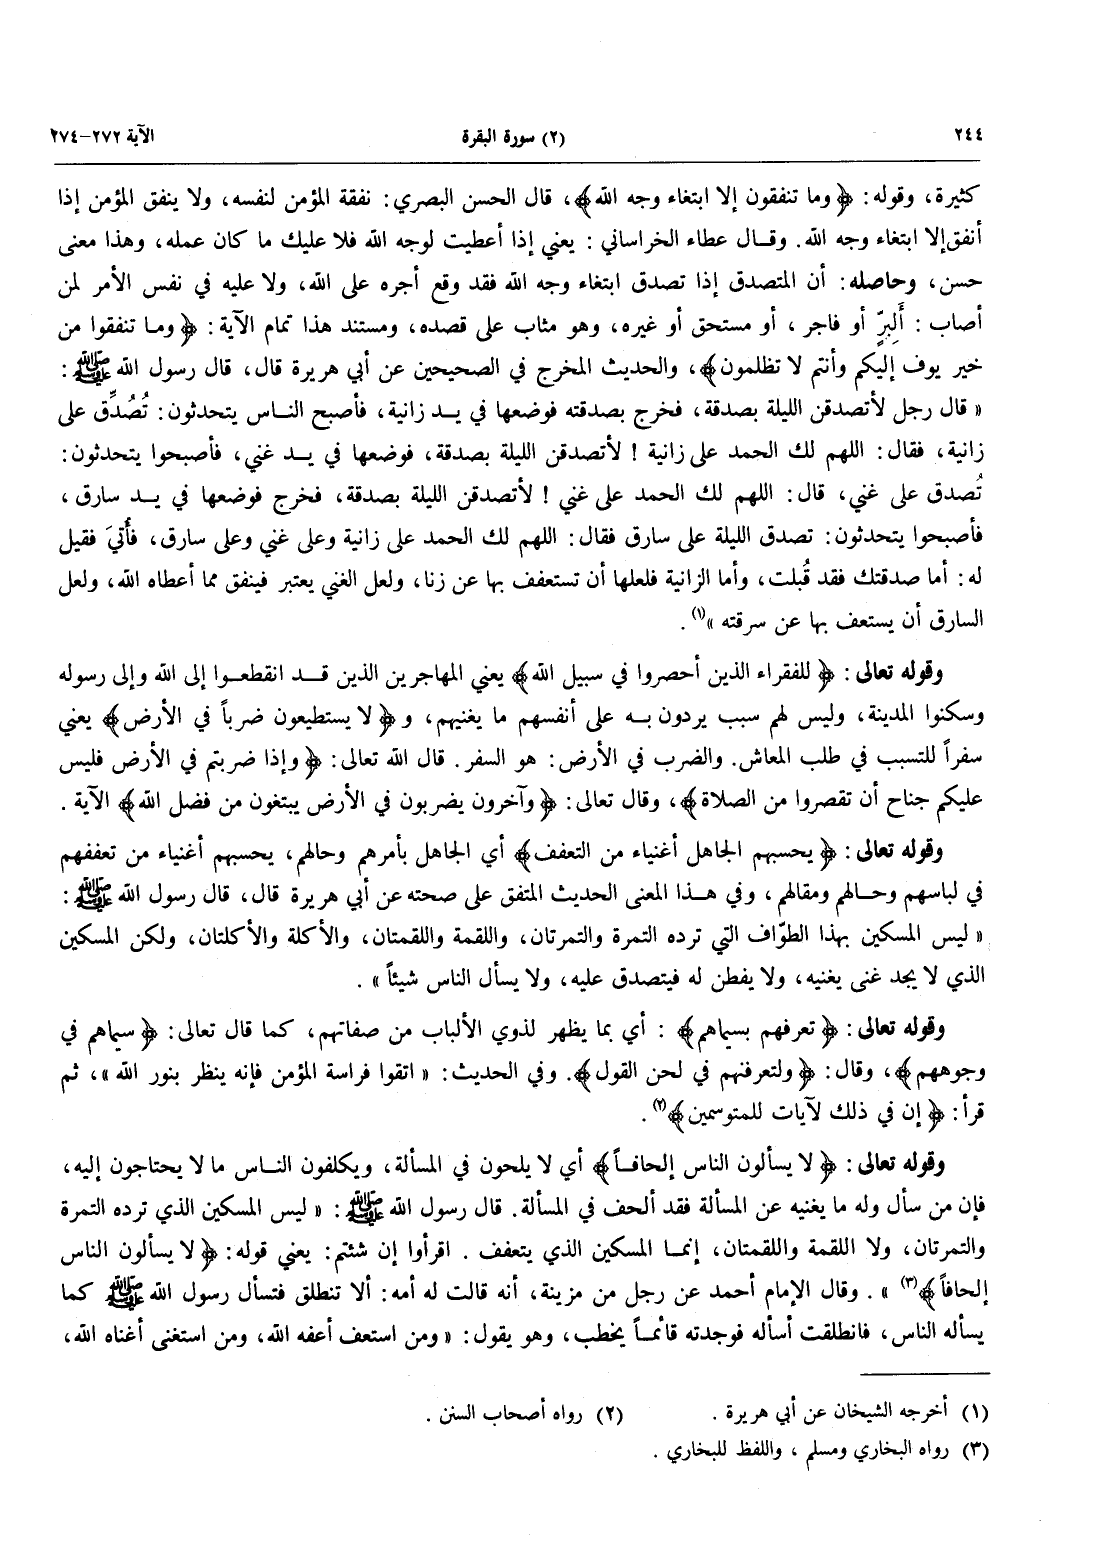 ٢٤٤ (٢) سورة البقرة الآية ٢٧٢–٢٧٤
كثيرة، وقوله: ﴿وما تنفقون إلا ابتغاء وجه الله﴾، قال الحسن البصري: نفقة المؤمن لنفسه، ولا ينفق المؤمن إذا
أنفق إلا ابتغاء وجه الله. وقال عطاء الخراساني : يعني إذا أعطيت لوجه الله فلا عليك ما كان عمله، وهذا معنى
حسن، وحاصله: أن المتصدق إذا تصدق ابتغاء وجه الله فقد وقع أجره على الله، ولا عليه في نفس الأمر لمن
أصاب : أَلِبرٍّ أو فاجر ، أو مستحق أو غيره، وهو مثاب على قصده، ومستند هذا تمام الآية: ﴿وما تنفقوا من
خير يوف إليكم وأنتم لا تظلمون﴾، والحديث المخرج في الصحيحين عن أبي هريرة قال، قال رسول الله ﷺ :
« قال رجل لأتصدقن الليلة بصدقة، فخرج بصدقته فوضعها في يد زانية، فأصبح الناس يتحدثون: تُصُدِّق على
زانية، فقال: اللهم لك الحمد على زانية ! لأتصدقن الليلة بصدقة، فوضعها في يد غني، فأصبحوا يتحدثون:
تُصدق على غني، قال: اللهم لك الحمد على غني ! لأتصدقن الليلة بصدقة، فخرج فوضعها في يد سارق ،
فأصبحوا يتحدثون: تصدق الليلة على سارق فقال: اللهم لك الحمد على زانية وعلى غني وعلى سارق، فأُتيَ فقيل
له: أما صدقتك فقد قُبلت، وأما الزانية فلعلها أن تستعفف بها عن زنا، ولعل الغني يعتبر فينفق مما أعطاه الله، ولعل
السارق أن يستعف بها عن سرقته »(١) .
وقوله تعالى : ﴿للفقراء الذين أحصروا في سبيل الله﴾ يعني المهاجرين الذين قد انقطعوا إلى الله وإلى رسوله
وسكنوا المدينة، وليس لهم سبب يردون به على أنفسهم ما يغنيهم، و ﴿لا يستطيعون ضرباً في الأرض﴾ يعني
سفراً للتسبب في طلب المعاش. والضرب في الأرض: هو السفر. قال الله تعالى: ﴿وإذا ضربتم في الأرض فليس
عليكم جناح أن تقصروا من الصلاة﴾، وقال تعالى: ﴿وآخرون يضربون في الأرض يبتغون من فضل الله﴾ الآية .
وقوله تعالى : ﴿يحسبهم الجاهل أغنياء من التعفف﴾ أي الجاهل بأمرهم وحالهم، يحسبهم أغنياء من تعففهم
في لباسهم وحالهم ومقالهم ، وفي هذا المعنى الحديث المتفق على صحته عن أبي هريرة قال، قال رسول الله ﷺ :
« ليس المسكين بهذا الطوّاف التي ترده التمرة والتمرتان، واللقمة واللقمتان، والأكلة والأكلتان، ولكن المسكين
الذي لا يجد غنى يغنيه، ولا يفطن له فيتصدق عليه، ولا يسأل الناس شيئاً » .
وقوله تعالى: ﴿تعرفهم بسيماهم﴾ : أي بما يظهر لذوي الألباب من صفاتهم، كما قال تعالى: ﴿سيماهم في
وجوههم﴾، وقال: ﴿ولتعرفنهم في لحن القول﴾. وفي الحديث: « اتقوا فراسة المؤمن فإنه ينظر بنور الله »، ثم
قرأ: ﴿إن في ذلك لآيات للمتوسمين﴾(٢).
وقوله تعالى: ﴿لا يسألون الناس إلحافاً﴾ أي لا يلحون في المسألة، ويكلفون الناس ما لا يحتاجون إليه،
فإن من سأل وله ما يغنيه عن المسألة فقد ألحف في المسألة. قال رسول الله ﷺ : « ليس المسكين الذي ترده التمرة
والتمرتان، ولا اللقمة واللقمتان، إنما المسكين الذي يتعفف . اقرأوا إن شئتم: يعني قوله: ﴿لا يسألون الناس
إلحافاً﴾(٣) » . وقال الإمام أحمد عن رجل من مزينة، أنه قالت له أمه: ألا تنطلق فتسأل رسول الله ﷺ كما
يسأله الناس، فانطلقت أسأله فوجدته قائماً يخطب، وهو يقول: « ومن استعف أعفه الله، ومن استغنى أغناه الله،
(١) أخرجه الشيخان عن أبي هريرة . (٢) رواه أصحاب السنن .
(٣) رواه البخاري ومسلم ، واللفظ للبخاري .